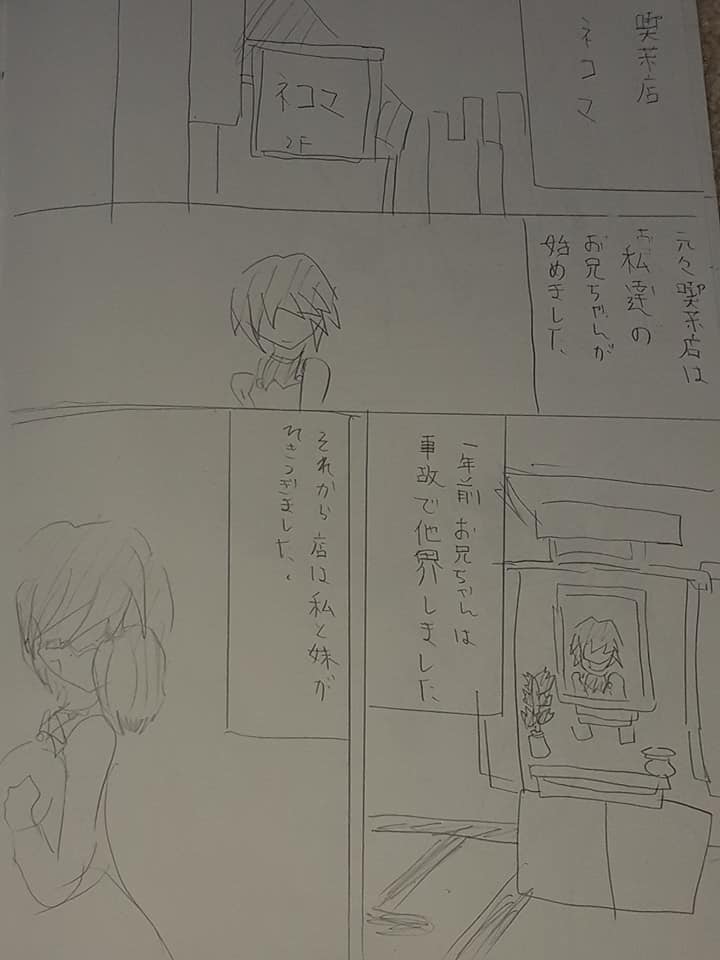 喫茶店
ネコマ
ネコマ
2F
元々喫茶店は
私達の
お兄ちゃんが
始めました、
一年前お兄ちゃんは
事故で他界しました、
それから店は私と妹が
ひきつぎました、